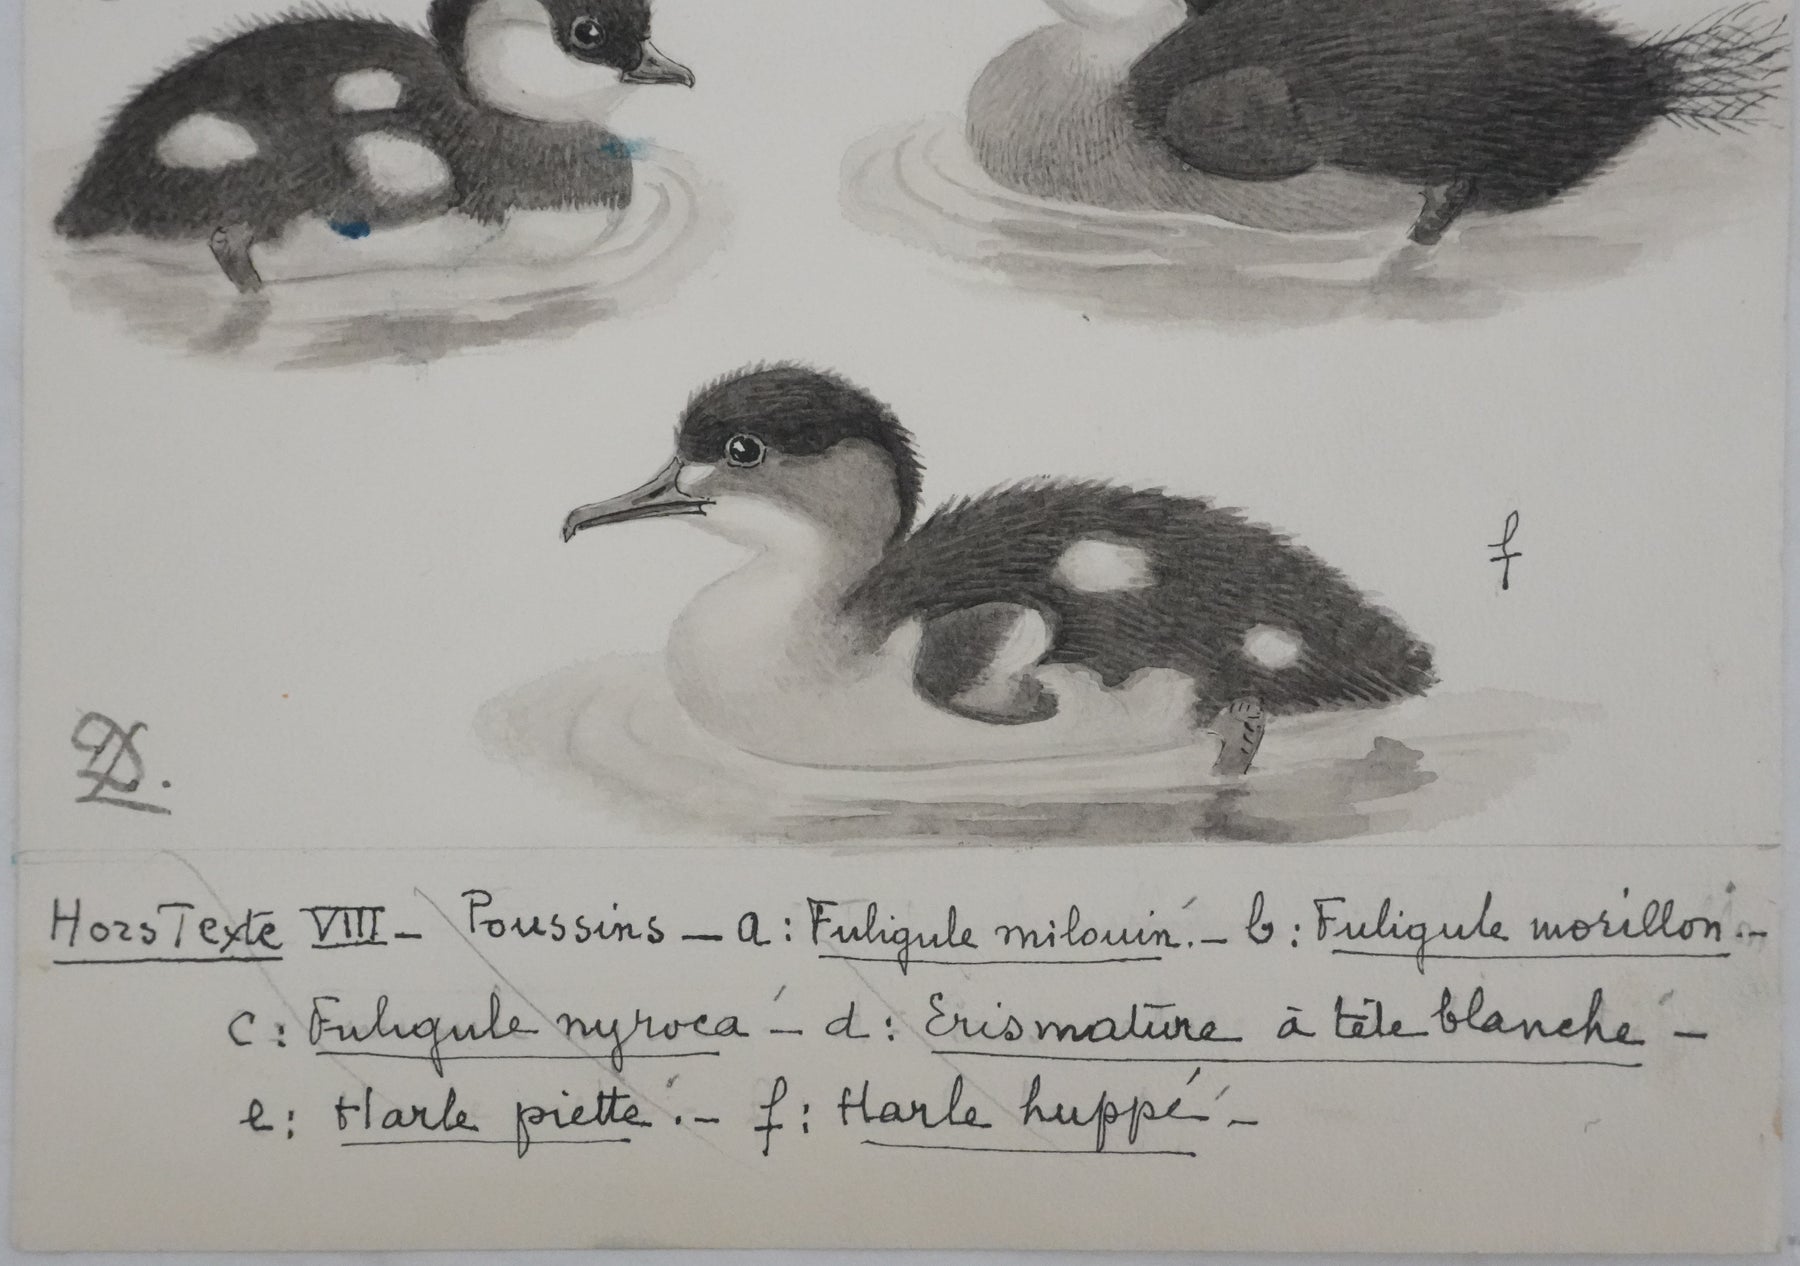 f
Hors Texte VIII - Poussins - a : Fuligule milouin. - b : Fuligule morillon. -
c : Fuligule nyroca - d : Erismature à tête blanche -
e : Harle piette. - f : Harle huppé -